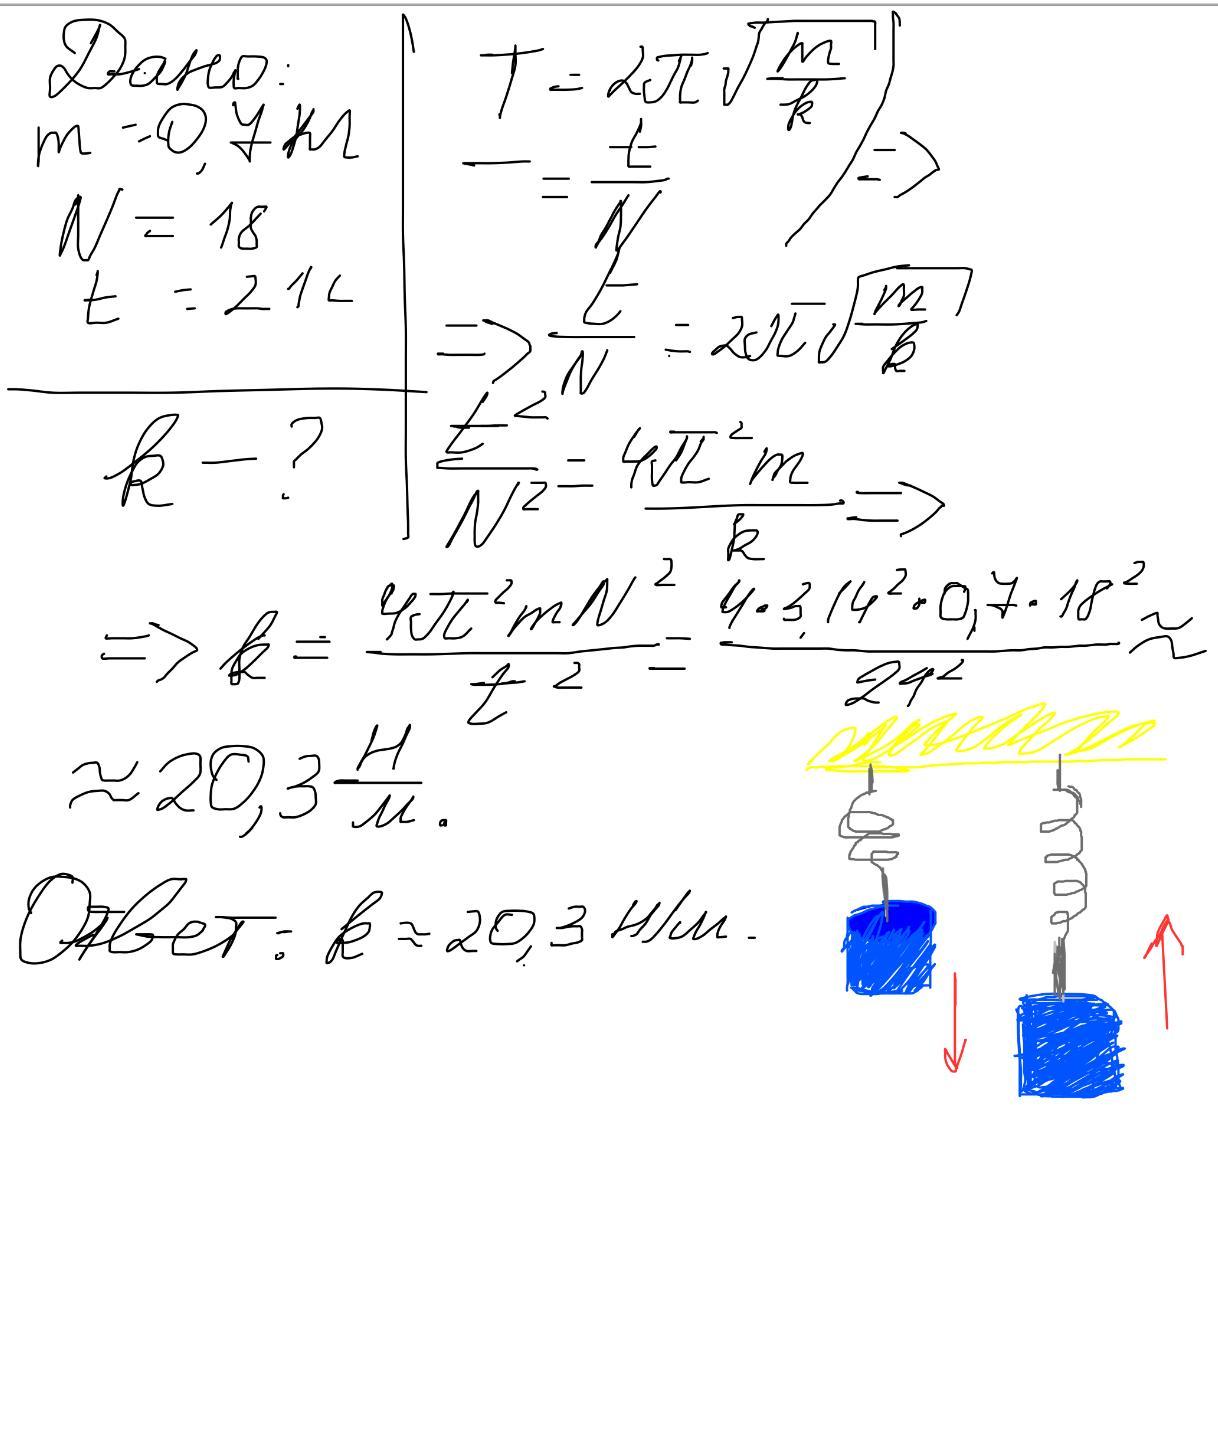 Дано:
m = 0,7 кг
N = 18
t = 21 с
k – ?
T = 2π√(m/k)
T = t/N =>
=> t/N = 2π√(m/k)
t²/N² = 4π²m/k =>
=> k = 4π²mN²/t² = 4·3,14²·0,7·18²/21² ≈
≈ 20,3 Н/м.
Ответ: k ≈ 20,3 Н/м.